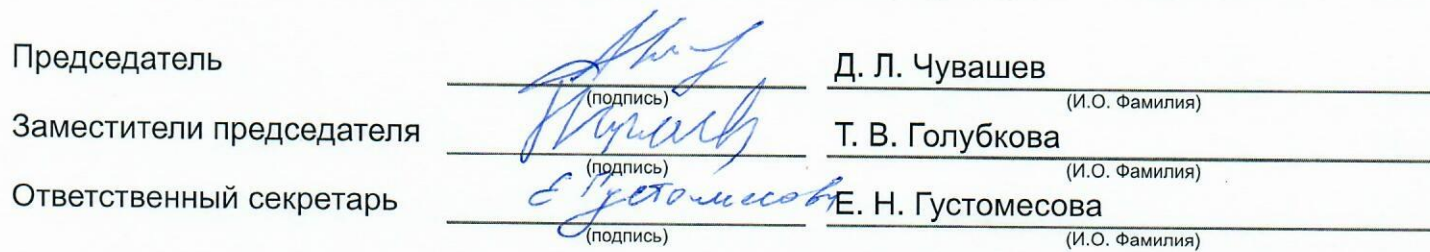 Председатель Д. Л. Чувашев
(подпись) (И.О. Фамилия)
Заместители председателя Т. В. Голубкова
(подпись) (И.О. Фамилия)
Ответственный секретарь Е Густомесова Е. Н. Густомесова
(подпись) (И.О. Фамилия)